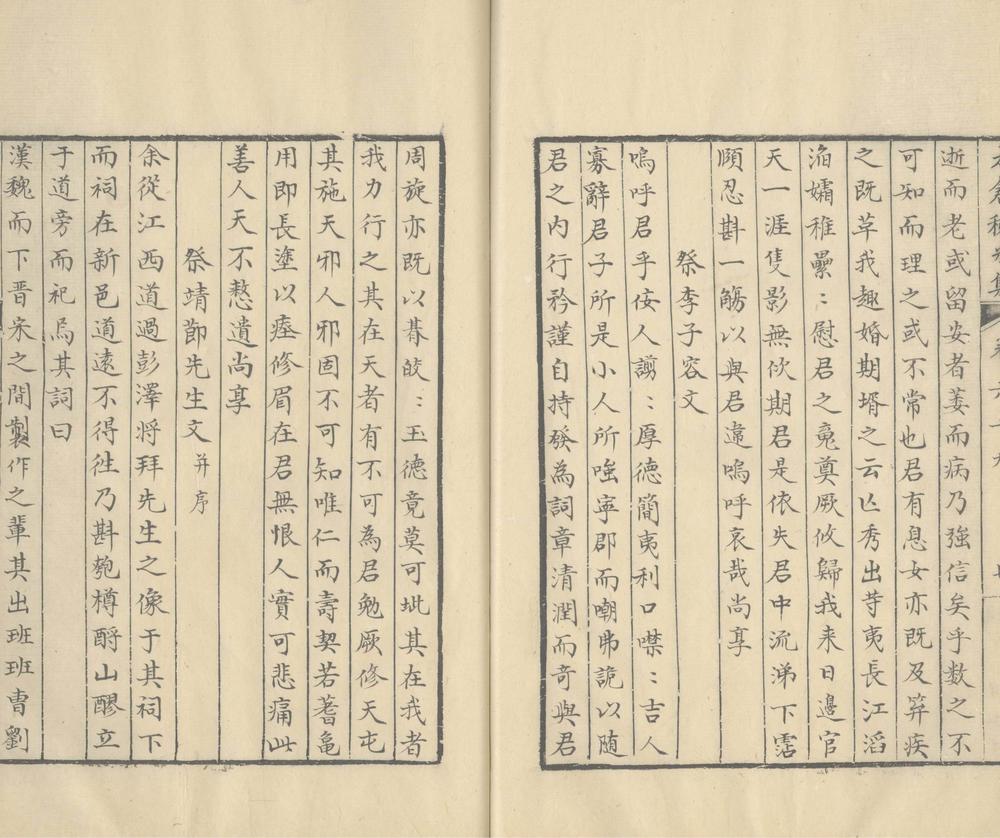 逝而老或留安者萎而病乃強信矣乎數之不
可知而理之或不常也君有息女亦既及笄疾
之既革我趣婚期壻之云亡秀出苛夷長江滔
滔孀稚纍：慰君之竟奠厥攸歸我来日邊官
天一涯隻影無依期君是依失君中流涕下霑
頤忍斟一觴以與君違嗚呼哀哉尚享
祭李子容文
嗚呼君乎佞人謭：厚德簡夷利口噤：吉人
寡辭君子所是小人所嗤寧郡而嘲弗詭以随
君之内行矜謹自持發為詞章清潤而奇與君
周旋亦既以朞皎：玉德竟莫可玼其在我者
我力行之其在天者有不可為君勉厥修天屯
其施天邪人邪固不可知唯仁而壽契若蓍龜
用即長塗以痊修眉在君無恨人實可悲痛此
善人天不憗遺尚享
祭靖節先生文并序
余從江西道過彭澤將拜先生之像于其祠下
而祠在新邑道遠不得徃乃斟匏樽酹山醪立
于道旁而祀焉其詞曰
漢魏而下晋宋之間製作之輩其出班班曹劉